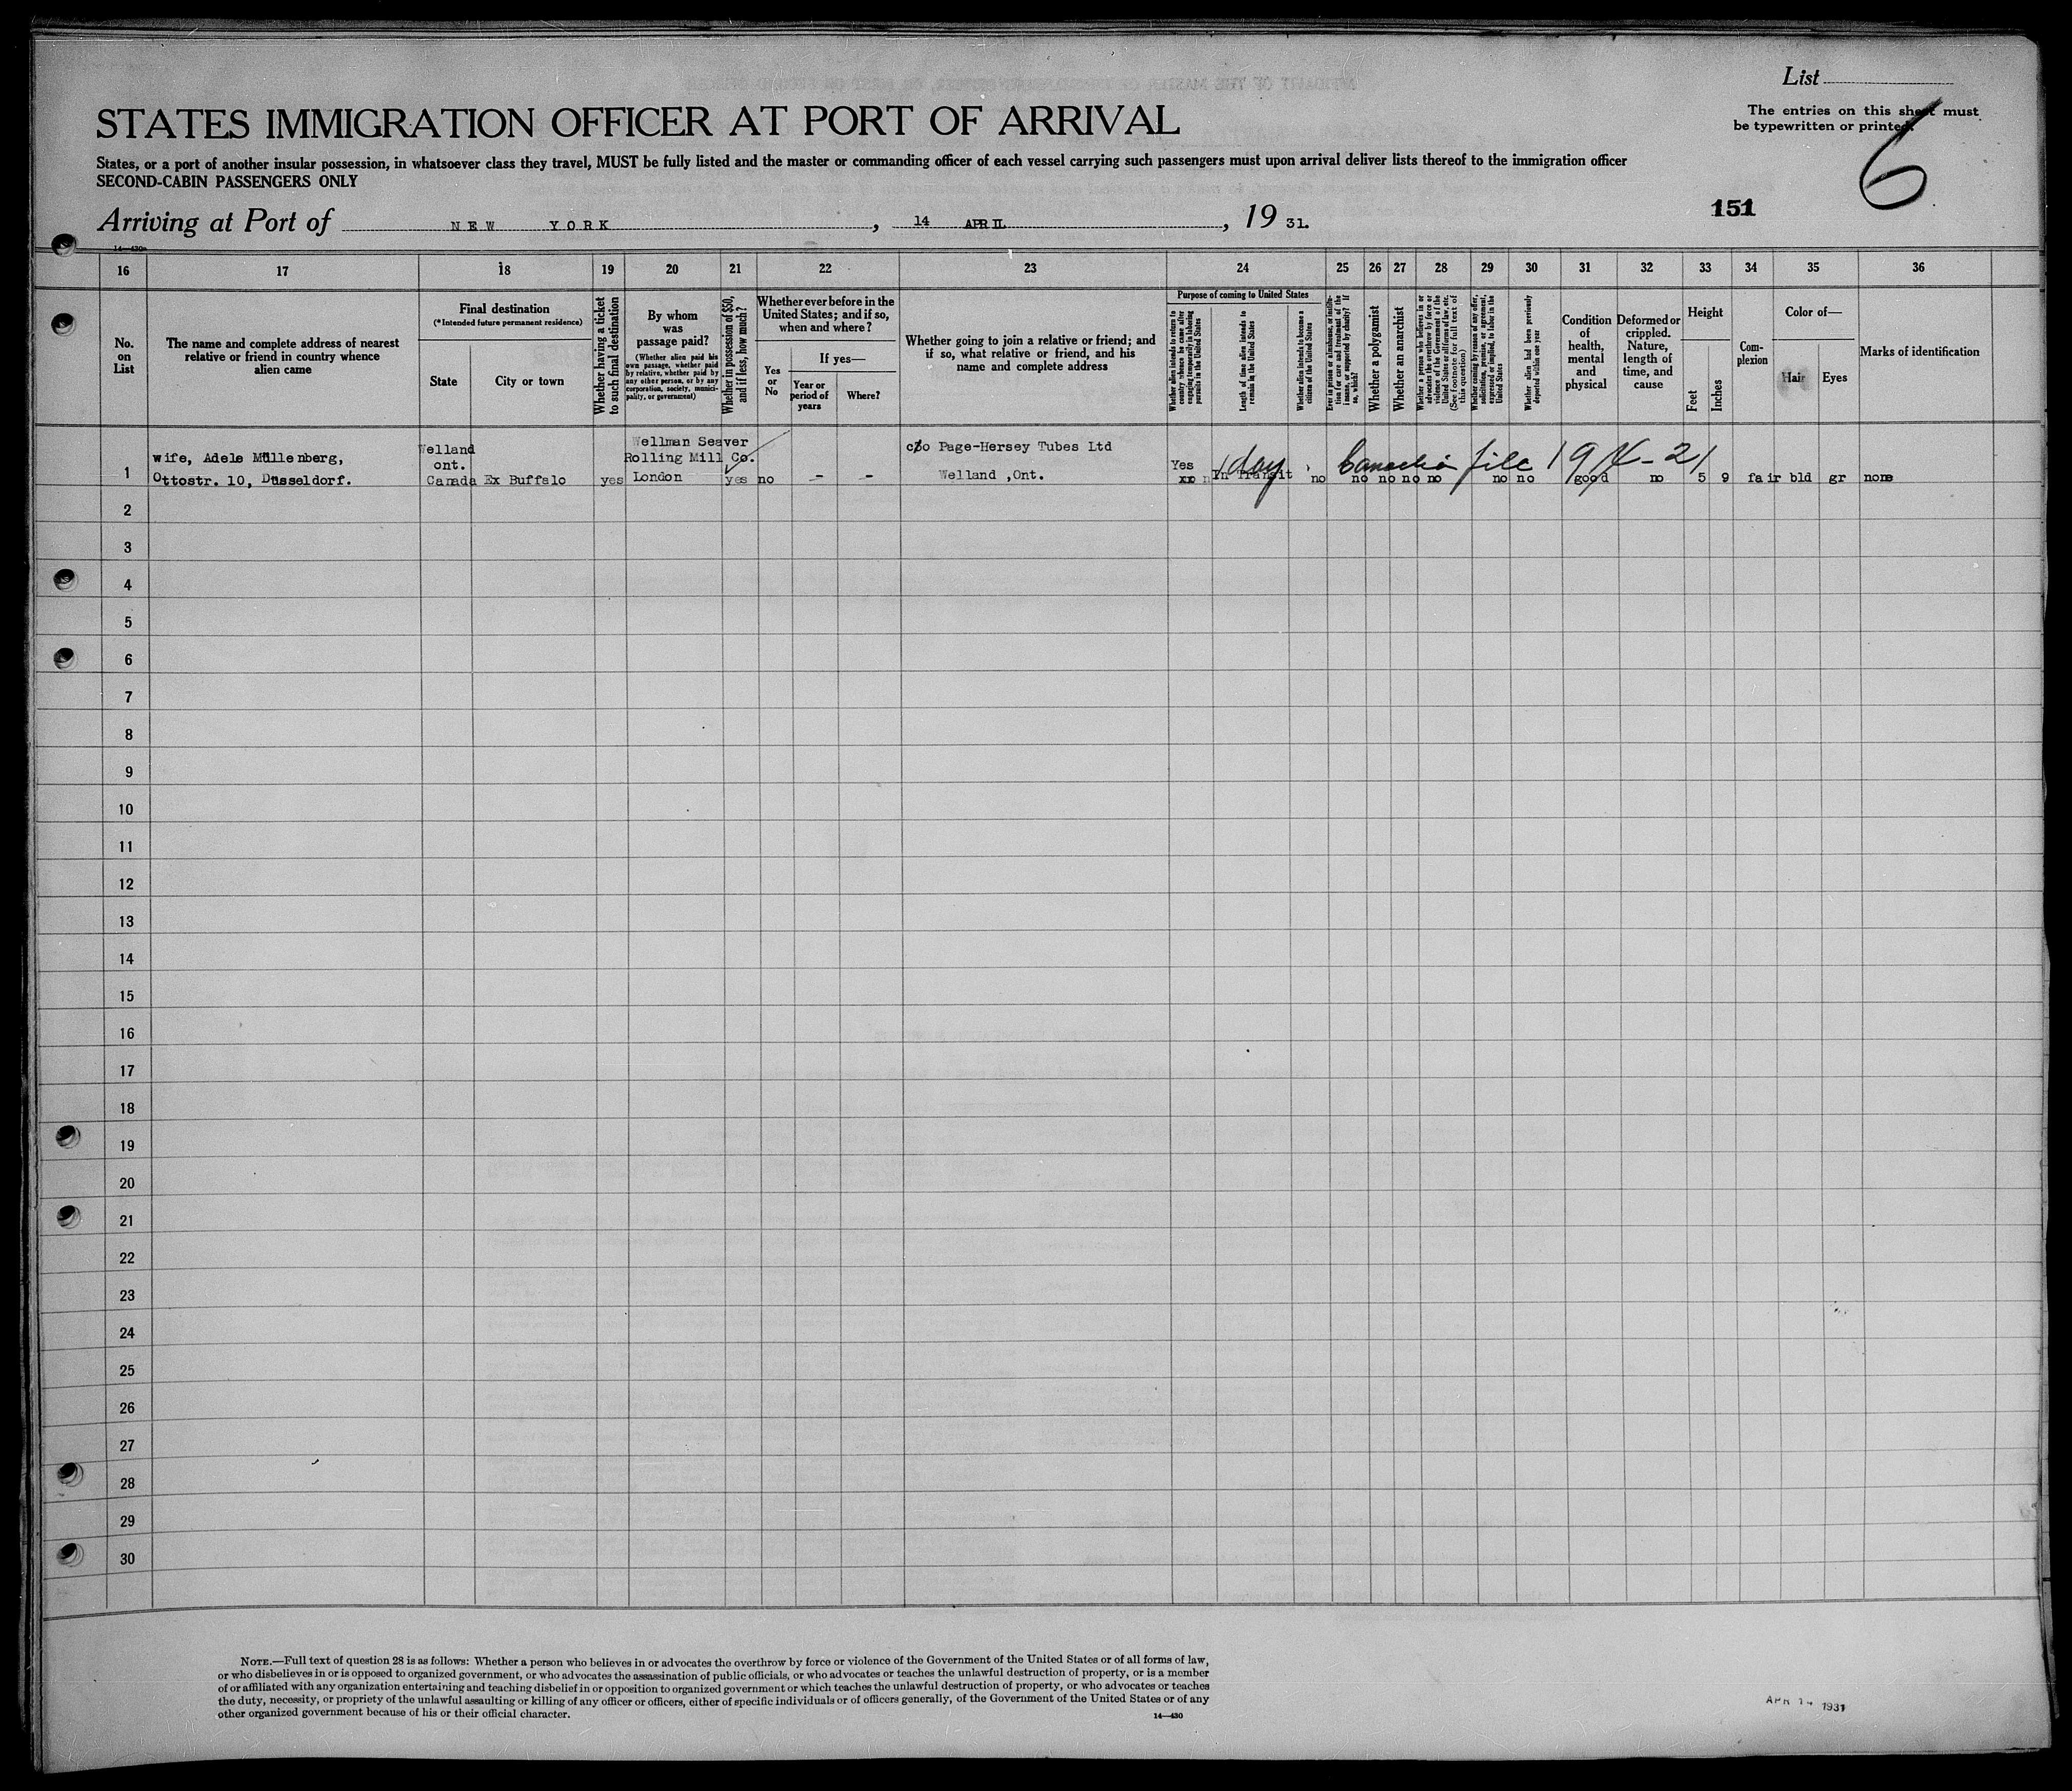 List
The entries on this sheet must
be typewritten or printed.
6
STATES IMMIGRATION OFFICER AT PORT OF ARRIVAL
States, or a port of another insular possession, in whatsoever class they travel, MUST be fully listed and the master or commanding officer of each vessel carrying such passengers must upon arrival deliver lists thereof to the immigration officer
SECOND-CABIN PASSENGERS ONLY
151
Arriving at Port of NEW YORK, 14 APRIL, 19 31.
14—430
16 17 18 19 20 21 22 23 24 25 26 27 28 29 30 31 32 33 34 35 36
No.
on
List
The name and complete address of nearest
relative or friend in country whence
alien came
Final destination
(*Intended future permanent residence)
State
City or town
Whether having a ticket
to such final destination
By whom
was
passage paid?
(Whether alien paid his
own passage, whether paid
by relative, whether paid by
any other person, or by any
corporation, society, munici-
pality, or government)
Whether in possession of $50,
and if less, how much?
Whether ever before in the
United States; and if so,
when and where?
Yes
or
No
If yes—
Year or
period of
years
Where?
Whether going to join a relative or friend; and
if so, what relative or friend, and his
name and complete address
Purpose of coming to United States
Whether alien intends to return to
country whence he came after
engaging temporarily in laboring
pursuits in the United States
Length of time alien intends to
remain in the United States
Whether alien intends to become a
citizen of the United States
Ever in prison or almshouse, or institu-
tion for care and treatment of the
insane, or supported by charity? If
so, which?
Whether a polygamist
Whether an anarchist
Whether a person who believes in or
advocates the overthrow by force or
violence of the Government of the
United States or all forms of law, etc.
(See footnote for full text of
this question)
Whether coming by reason of any offer,
solicitation, promise, or agreement,
expressed or implied, to labor in the
United States
Whether alien had been previously
deported within one year
Condition
of
health,
mental
and
physical
Deformed or
crippled.
Nature,
length of
time, and
cause
Height
Feet
Inches
Com-
plexion
Color of—
Hair
Eyes
Marks of identification
1
wife, Adele Müllenberg,
Ottostr. 10, Düsseldorf.
Welland
ont.
Canada
Ex Buffalo
yes
Wellman Seaver
Rolling Mill Co.
London
yes
no
-
-
c/o Page-Hersey Tubes Ltd
Welland ,Ont.
Yes
1 day
In Transit
Canadian file
no no no no no no no good no 5 9 fair bld gr none
2
3
4
5
6
7
8
9
10
11
12
13
14
15
16
17
18
19
20
21
22
23
24
25
26
27
28
29
30
NOTE.—Full text of question 28 is as follows: Whether a person who believes in or advocates the overthrow by force or violence of the Government of the United States or of all forms of law,
or who disbelieves in or is opposed to organized government, or who advocates the assassination of public officials, or who advocates or teaches the unlawful destruction of property, or is a member
of or affiliated with any organization entertaining and teaching disbelief in or opposition to organized government or which teaches the unlawful destruction of property, or who advocates or teaches
the duty, necessity, or propriety of the unlawful assaulting or killing of any officer or officers, either of specific individuals or of officers generally, of the Government of the United States or of any
other organized government because of his or their official character.
14—430
APR 14 1931